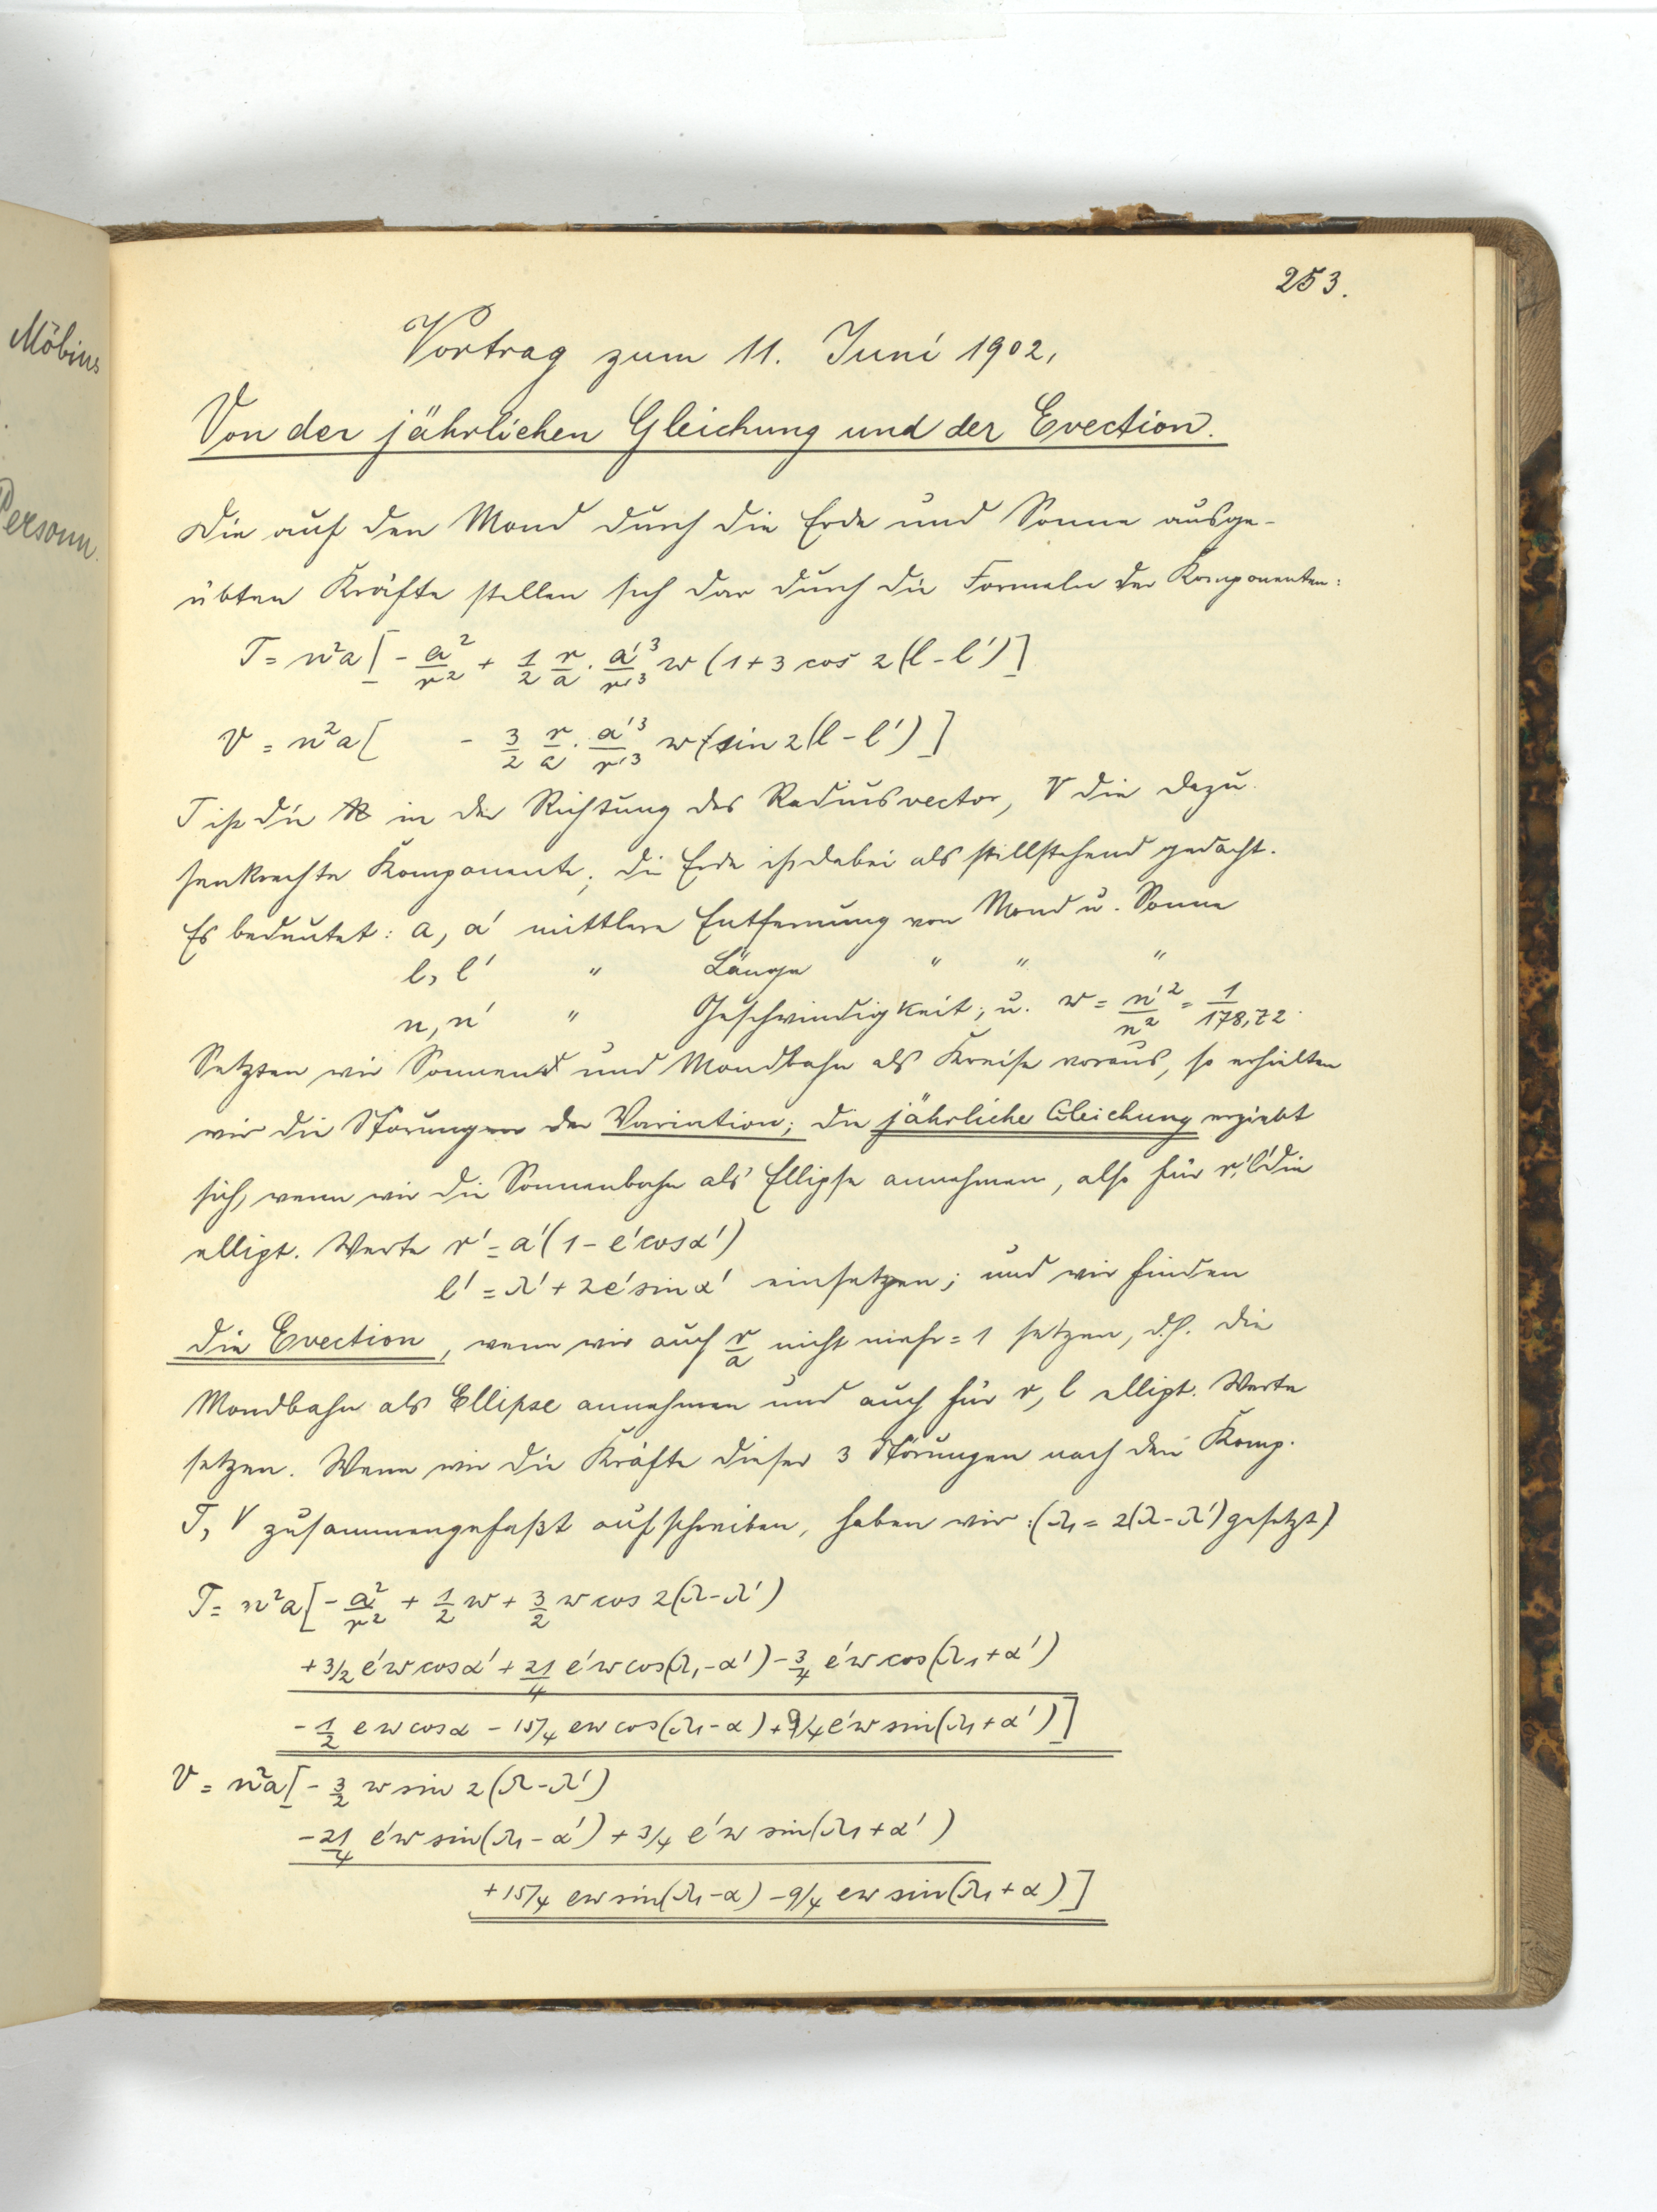 Möbius
Personn.
253.
Vortrag zum 11. Juni 1902.
Von der jährlichen Gleichung und der Evection.
Die auf den Mond durch die Erde und Sonne ausge-
übten Kräfte stellen sich dar durch die Formeln der Komponenten:
T = n²a [ - a²/r² + 1/2 r/a · a'³/r'³ w (1 + 3 cos 2(l - l') ]
V = n²a [ - 3/2 r/a · a'³/r'³ w sin 2(l - l') ]
T ist die in der Richtung des Radiusvector, V die dazu
senkrechte Komponente; die Erde ist dabei als stillstehend gedacht.
Es bedeutet: a, a' mittlere Entfernung von Mond u. Sonne
l, l' " Länge " " "
n, n' " Geschwindigkeit; u. w = n'²/n² = 1/178,72.
Setzten wir Sonnen und Mondbahn als Kreise voraus, so erhielten
wir die Störungen der Variation; die jährliche Gleichung ergiebt
sich, wenn wir die Sonnenbahn als Ellipse annehmen, also für r', l' die
ellipt. Werte r' = a'(1 - e'cosα')
l' = λ' + 2e'sinα' einsetzen; und wir finden
die Evection, wenn wir auch r/a nicht mehr = 1 setzen, d.h. die
Mondbahn als Ellipse annehmen und auch für r, l ellipt. Werte
setzen. Wenn wir die Kräfte dieser 3 Störungen nach den Komp.
T, V zusammengefaßt aufschreiben, haben wir: (λ₁ = 2(λ-λ') gesetzt)
T = n²a [ - a²/r² + 1/2 w + 3/2 w cos 2(λ-λ')
+ 3/2 e'w cosα' + 21/4 e'w cos(λ₁-α') - 3/4 e'w cos(λ₁+α')
- 1/2 e w cosα - 15/4 ew cos(λ₁-α) + 9/4 e'w sin(λ₁+α') ]
V = n²a [ - 3/2 w sin 2(λ-λ')
- 21/4 e'w sin(λ₁-α') + 3/4 e'w sin(λ₁+α')
+ 15/4 ew sin(λ₁-α) - 9/4 ew sin(λ₁+α) ]